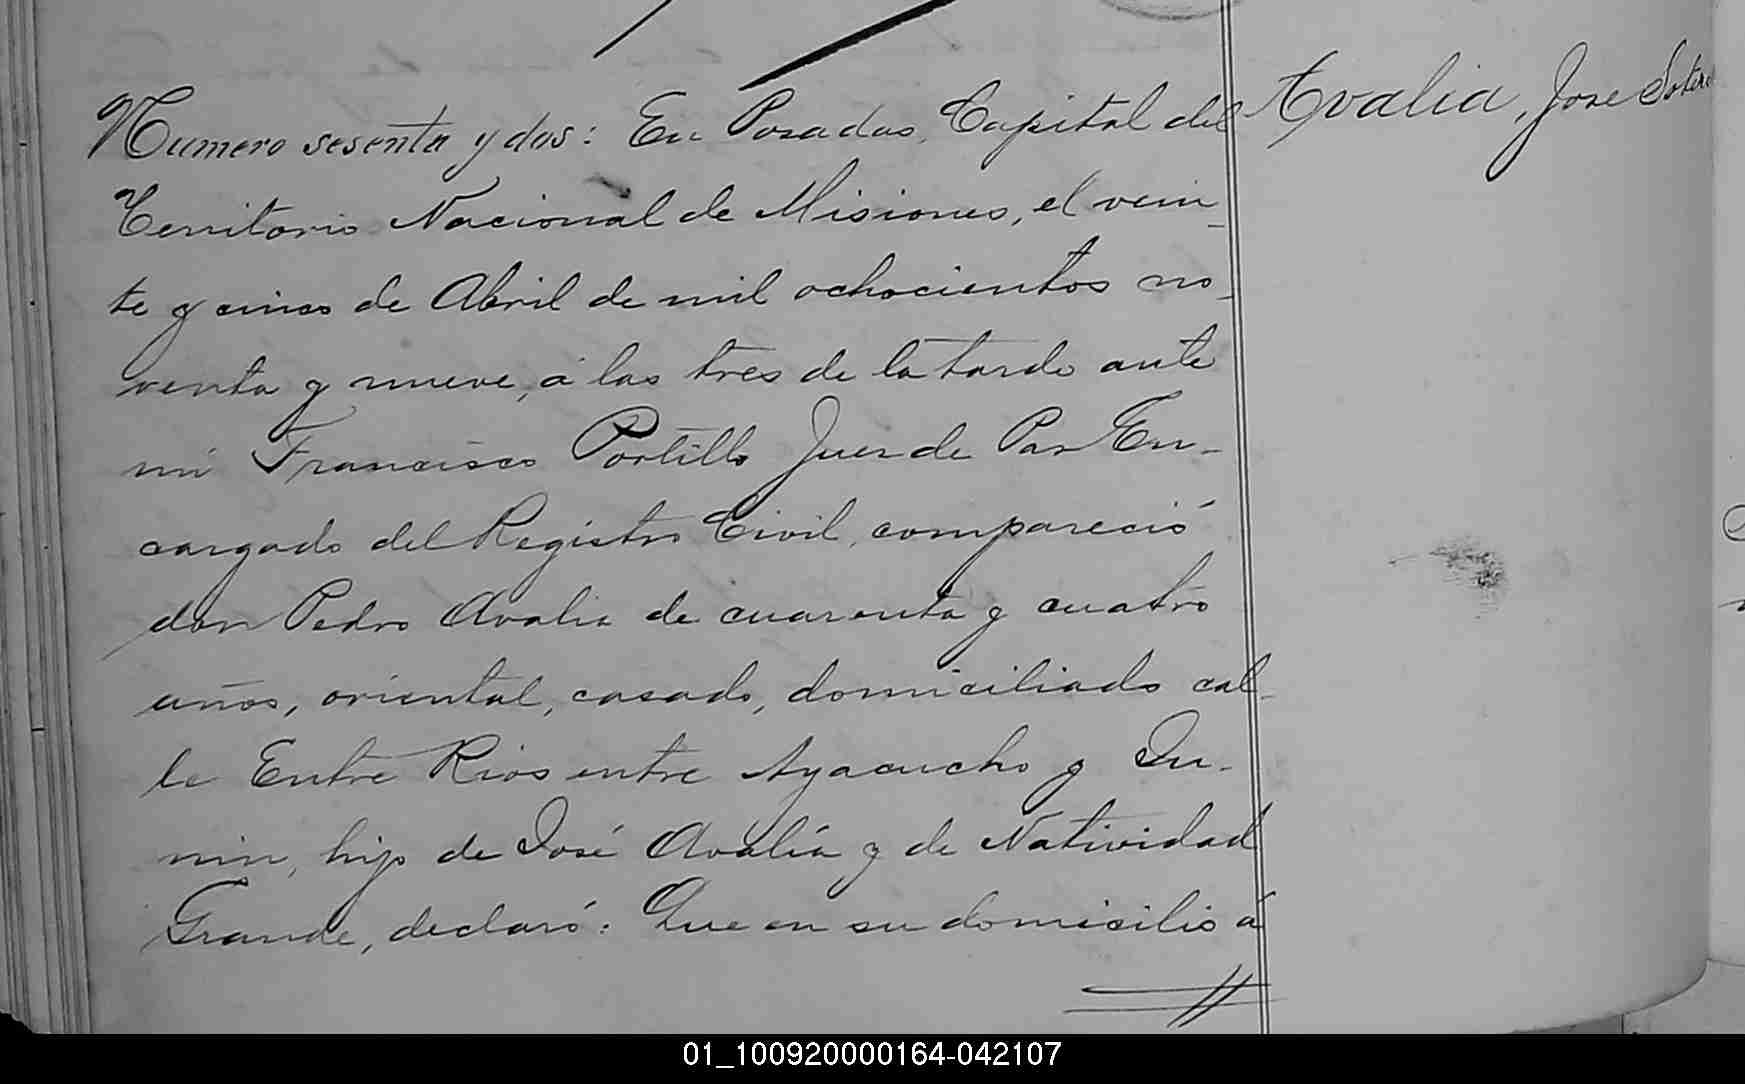 Numero sesenta y dos: En Posadas, Capital del
Avalia, Jose Sotero
Territorio Nacional de Misiones, el vein-
te y cinco de Abril de mil ochocientos no-
venta y nueve, á las tres de la tarde ante
mi Francisco Portillo Juez de Paz En-
cargado del Registro Civil, compareció
don Pedro Avalia de cuarenta y cuatro
años, oriental, casado, domiciliado cal-
le Entre Rios entre Ayacucho y Ju-
nin, hijo de José Avalía y de Natividad
Grande, declaró: Que en su domicilio á
01_100920000164-042107